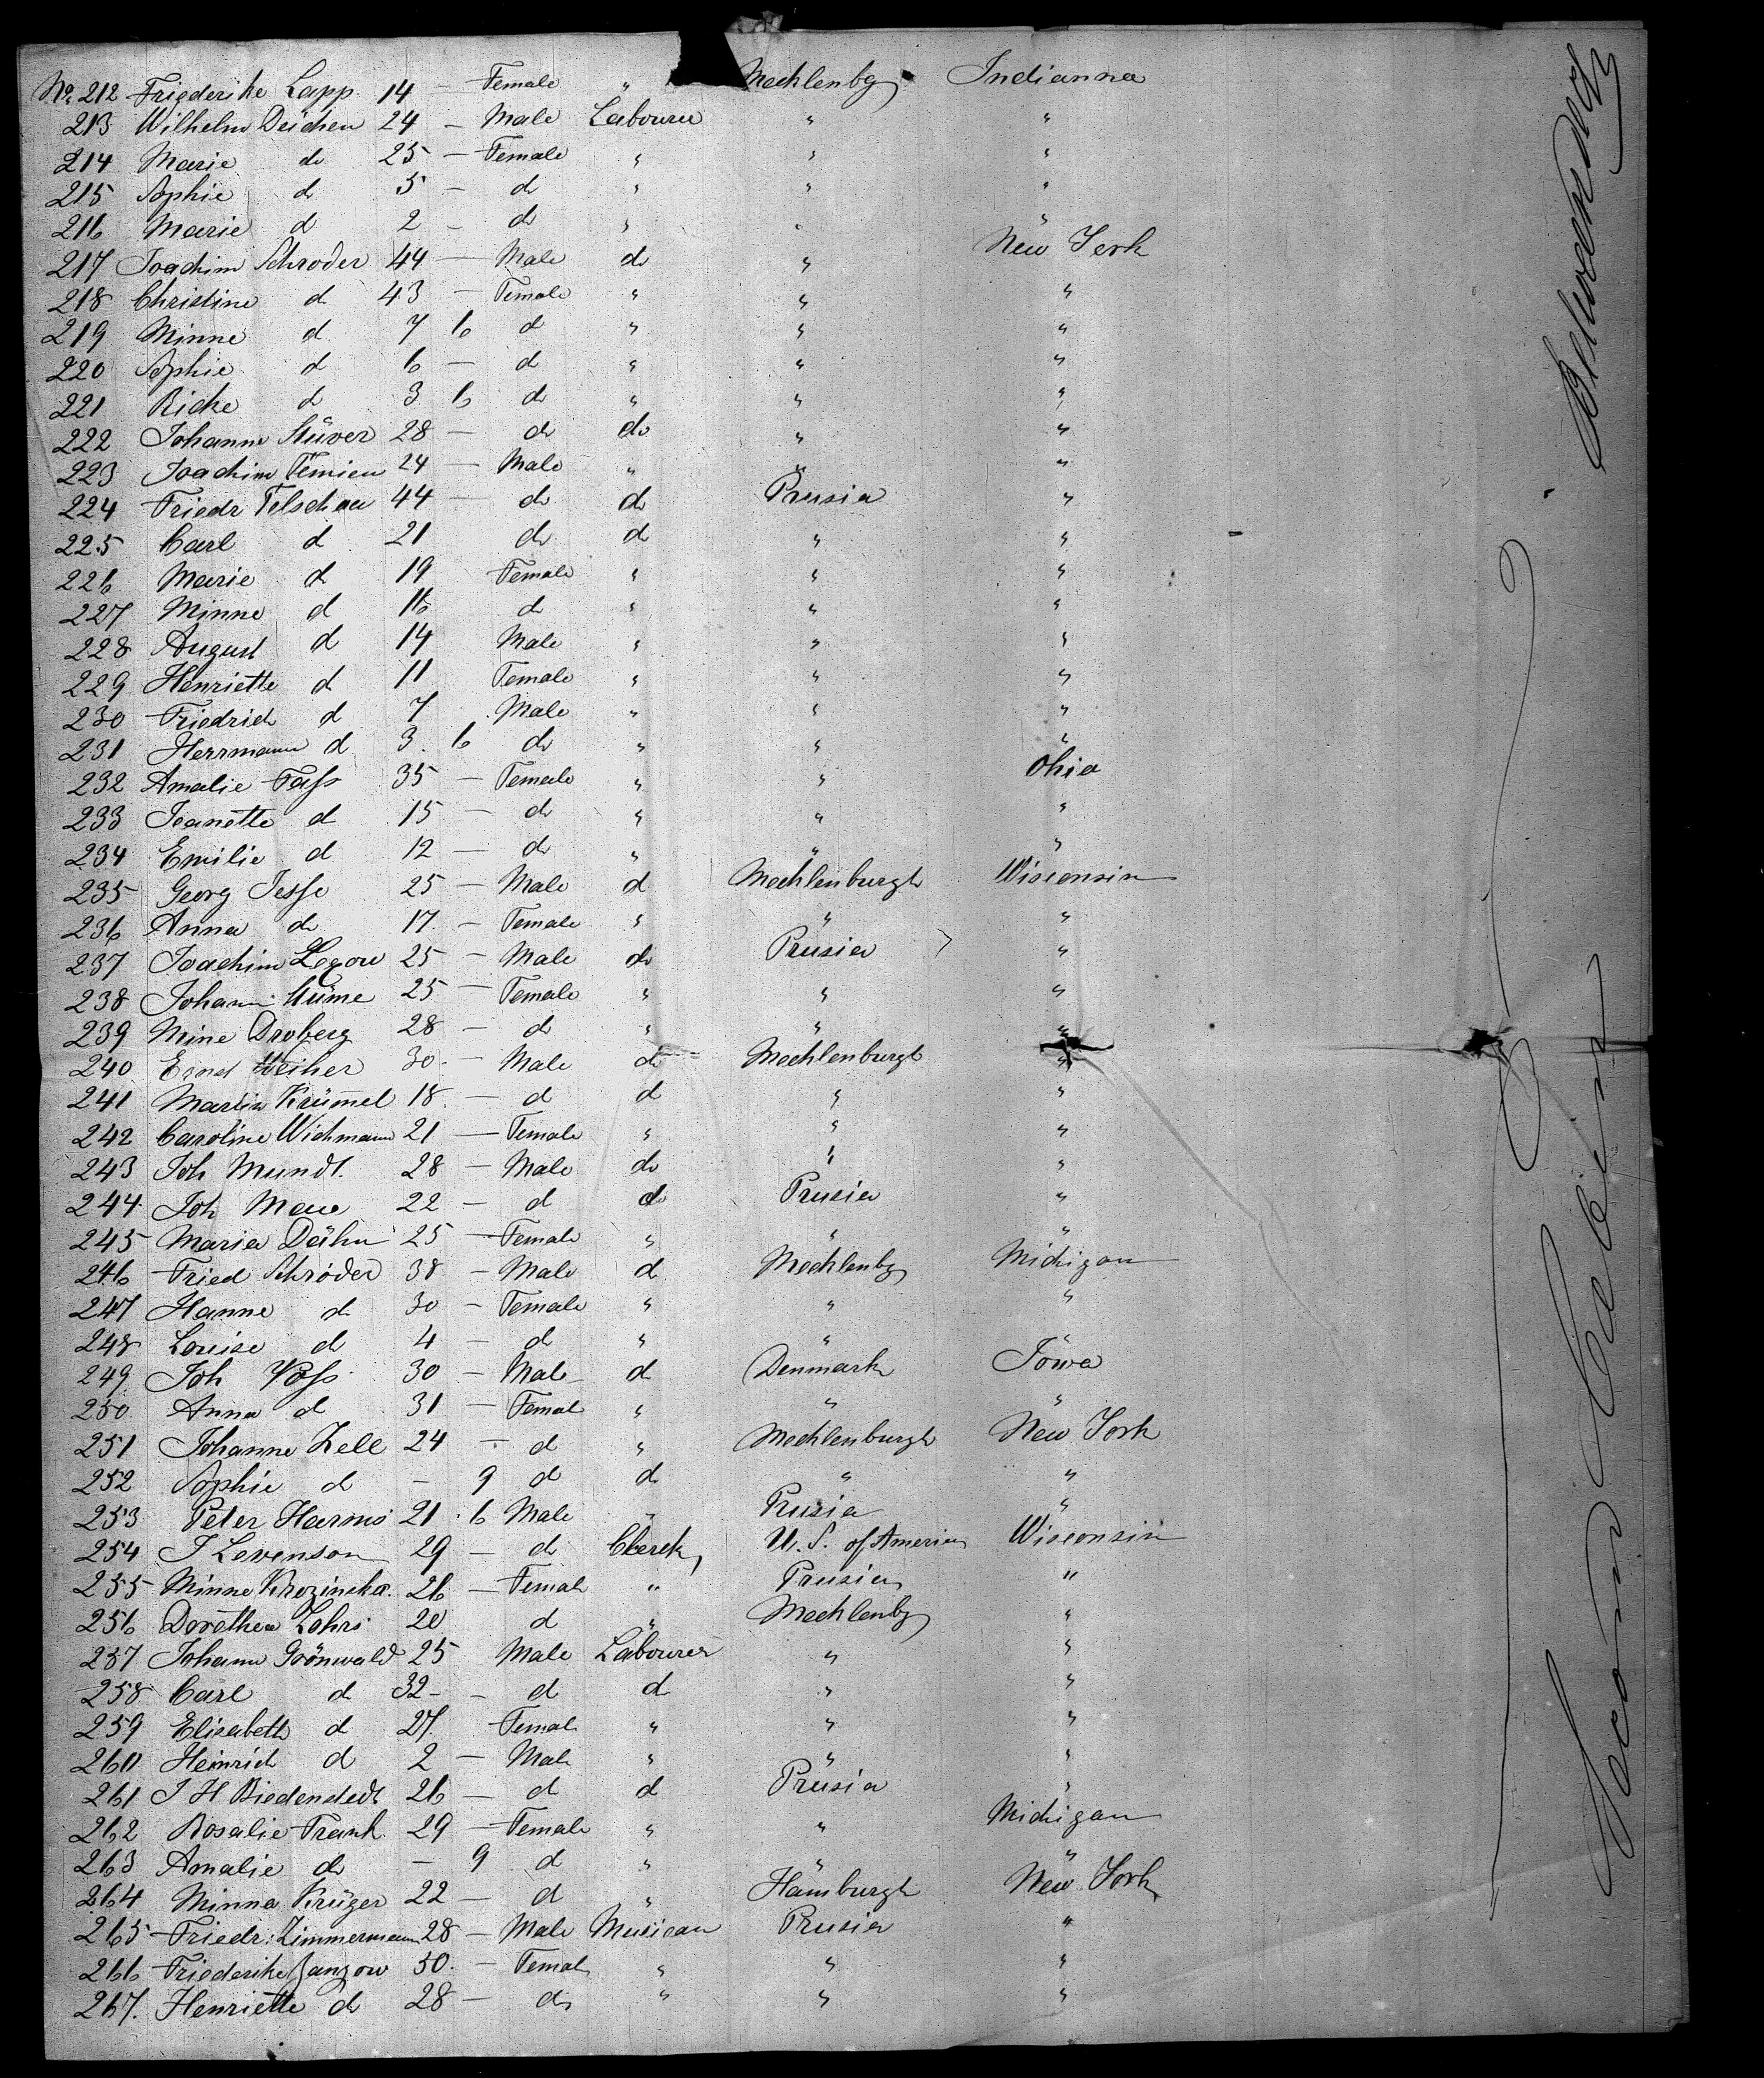 No. 212 Friederike Lapp 14 — Female " Mechlenbg Indianna
213 Wilhelm Deichen 24 — Male Labourer " "
214 Marie do 25 — Female " " "
215 Sophie d 5 — d " " "
216 Marie d 2 — d " " "
217 Joachim Schroder 44 — Male do " New York
218 Christine d 43 — Female " " "
219 Minne d 7 6 d " " "
220 Sophie d 6 — d " " "
221 Ricke d 3 6 d " " "
222 Johanne Stüver 28 — do do " "
223 Joachim Temien 24 — Male " " "
224 Friedr Telschau 44 — do do Prusia "
225 Carl d 21 do d " "
226 Marie d 19 Female " " "
227 Minne d 16 d " " "
228 August d 14 Male " " "
229 Henriette d 11 Female " " "
230 Friedrich d 7 Male " " "
231 Herrmann d 3. 6 do " " "
232 Amalie Fass 35 — Female " " Ohio
233 Jeanette d 15 — do " " "
234 Emilie d 12 — do " " "
235 Georg Jesse 25 — Male d Mechlenburgh Wisconsin
236 Anna do 17. — Female " " "
237 Joachim Legow 25 — Male do Prusia "
238 Johann Stüme 25 — Female " " "
239 Mine Droberg 28 — d " " "
240 Ernst Weiher 30 — Male do Mechlenburgh "
241 Martin Krümel 18 — d d " "
242 Caroline Wichmann 21 — Female " " "
243 Joh Mundt. 28 — Male do " "
244. Joh Maue 22 — d do Prusia "
245 Maria Dähn 25 — Female " " "
246 Fried Schröder 38 — Male d Mechlenbg Michigan
247 Hanne d 30 — Female " " "
248 Louise d 4 — d " " "
249 Joh Voss 30 — Male d Denmark Iowa
250 Anna d 31 — Femal " " "
251 Johanne Zell 24 — d " Mechlenburgh New York
252 Sophie d — 9 d d " "
253 Peter Harms 21. 6 Male " Prusia "
254 J Levenson 29 — d Clerck U. S. of America Wisconsin
255 Minne Krozinska. 26 — Femal " Prusia "
256 Dorothea Lohrs 20 d " Mechlenbg "
257 Johann Grönwald 25 Male Labourer " "
258 Carl d 32 — d d " "
259 Elisabeth d 27. Femal " " "
260 Heinrich d 2 — Male " " "
261 J H Biedenstedt 26 — d d Prusia "
262 Rosalie Frank 29 — Female " " Michigan
263 Amalie do — 9 d " " "
264 Minna Krüger 22 — d " Hamburgh New York
265 Friedr: Zimmermann 28 — Male Musican Prusia "
266 Friederike Janzow 50. — Femal " " "
267. Henriette d 28 — do " " "